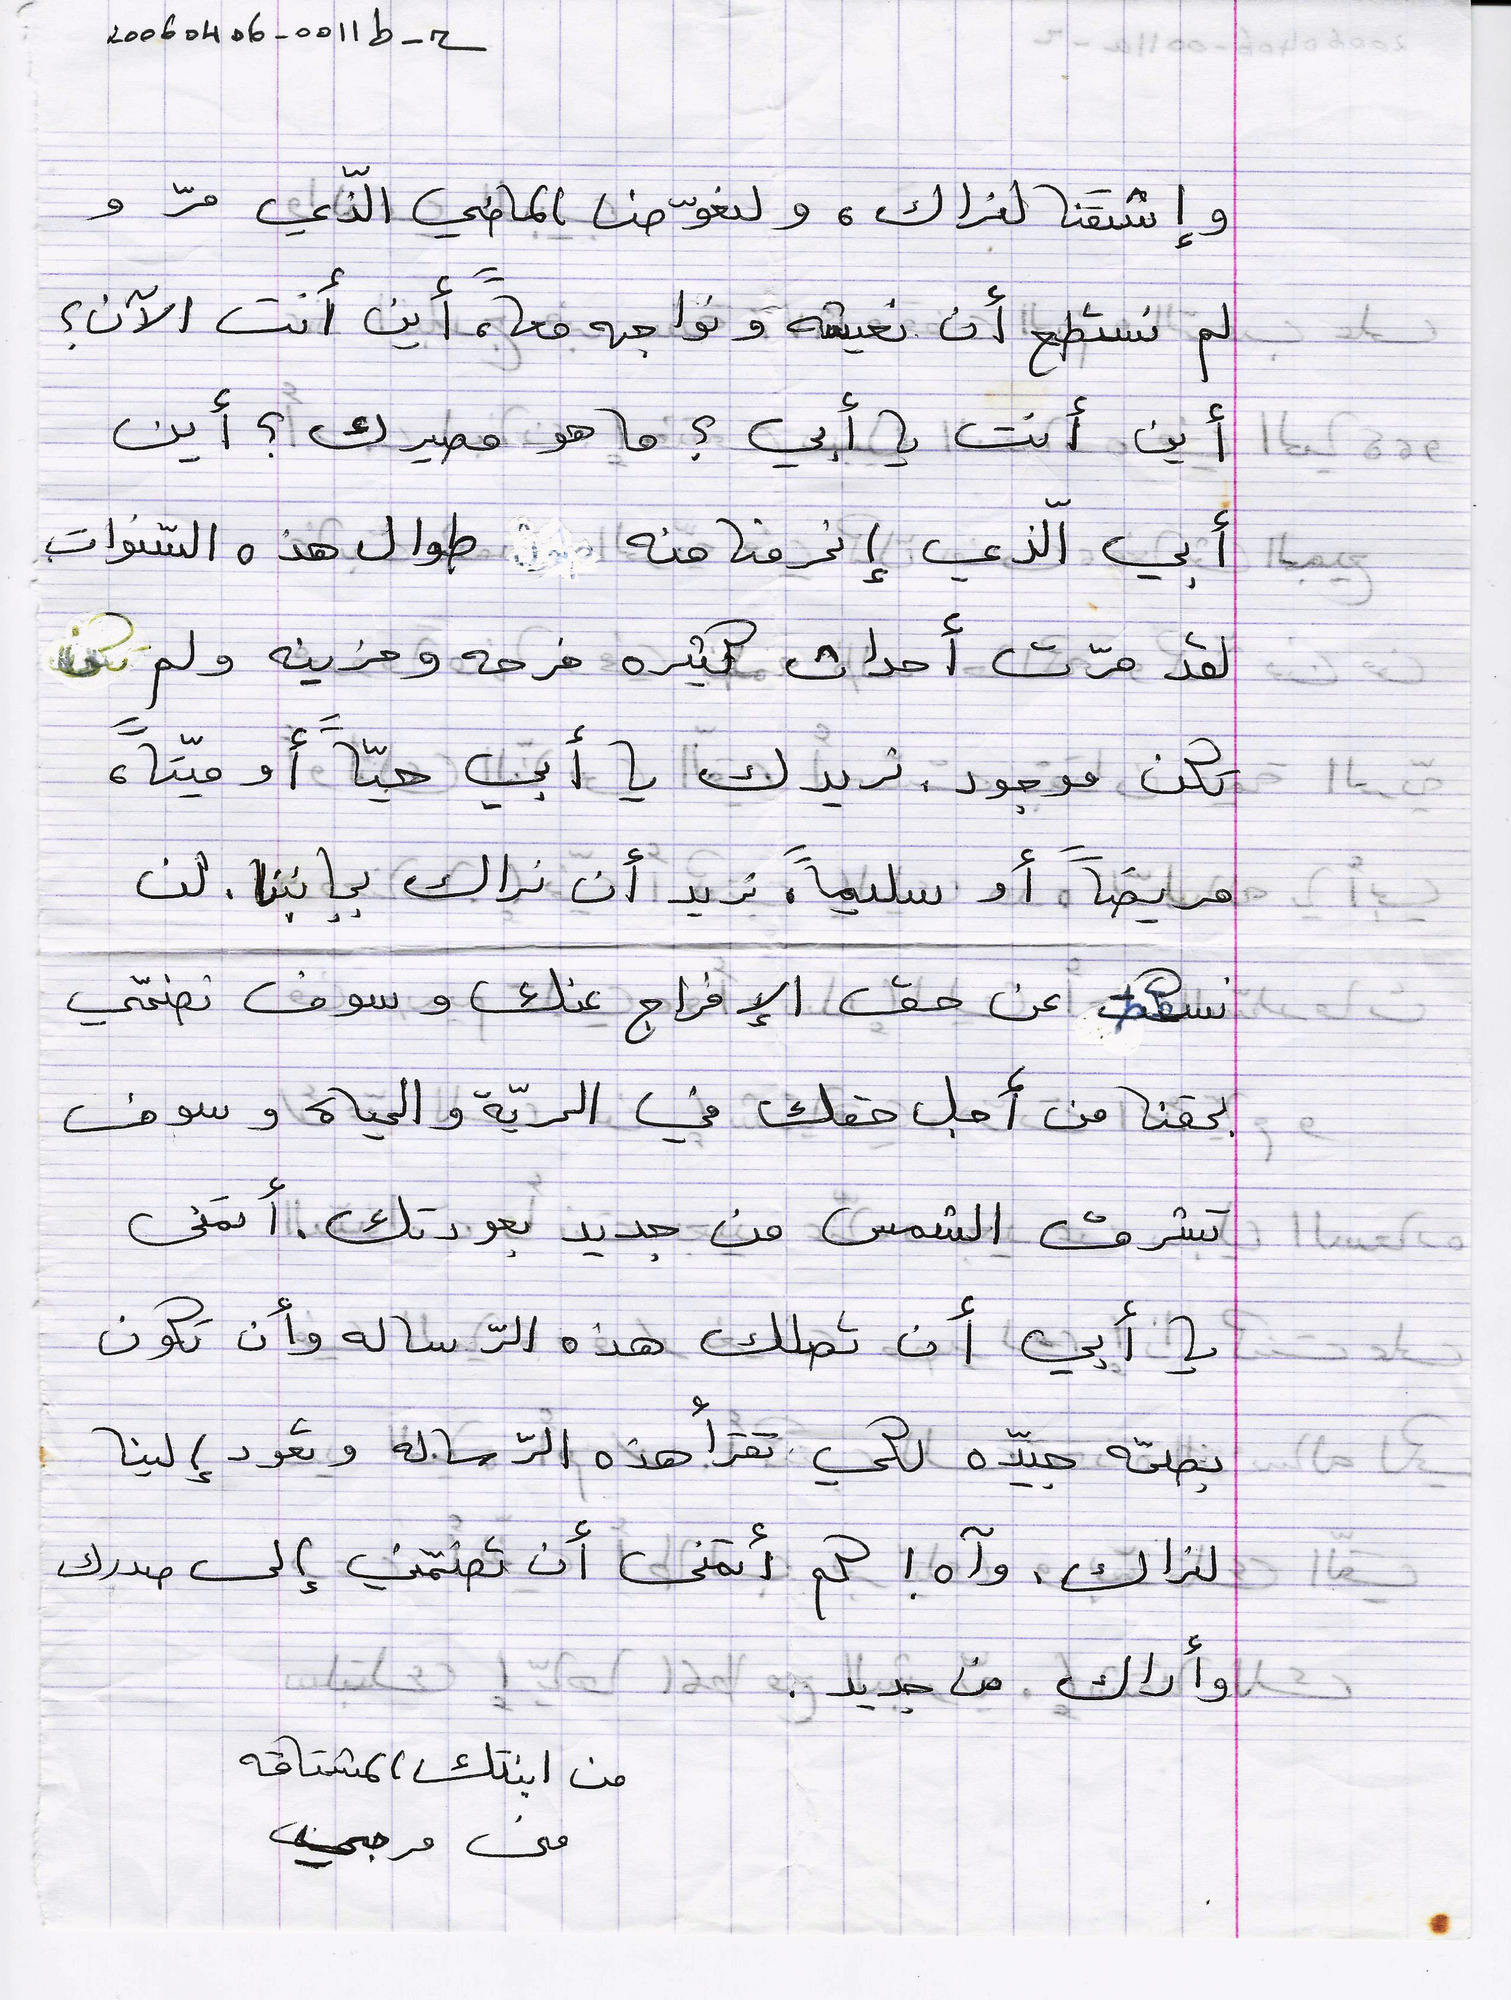 20060406-0011b-r
وإشتقنا لنراك، و لنعوّضنا الماضي الّذي مرّ و
لم نستطع أن نعيشه و نواجه معاً، أين أنت الآن؟
أين أنت يا أبي ؟ ما هو مصيرك ؟ أين
أبي الّذي إنحرمنا منه طوال هذه السّنوات
لقد مرّت أحداث كثيره فرحه وحزينه ولم تكن
تكن موجود. نريدك يا أبي حيّاً أو ميّتاً،
مريضاً أو سليماً، نريد أن نراك بجانبنا. لن
نسكت عن حق الإفراج عنك و سوف نضحّي
بحقنا من أجل حقك في الحريّة والحياة و سوف
تشرق الشمس من جديد بعودتك. أتمنى
يا أبي أن تصلك هذه الرّساله وأن تكون
بصحّه جيّده لكي تقرأ هذه الرّساله وتعود إلينا
لنراك. وآه! كم أتمنى أن تضمّني إلى صدرك
وأراك من جديد.
من ابنتك المشتاقه
منى مرجي